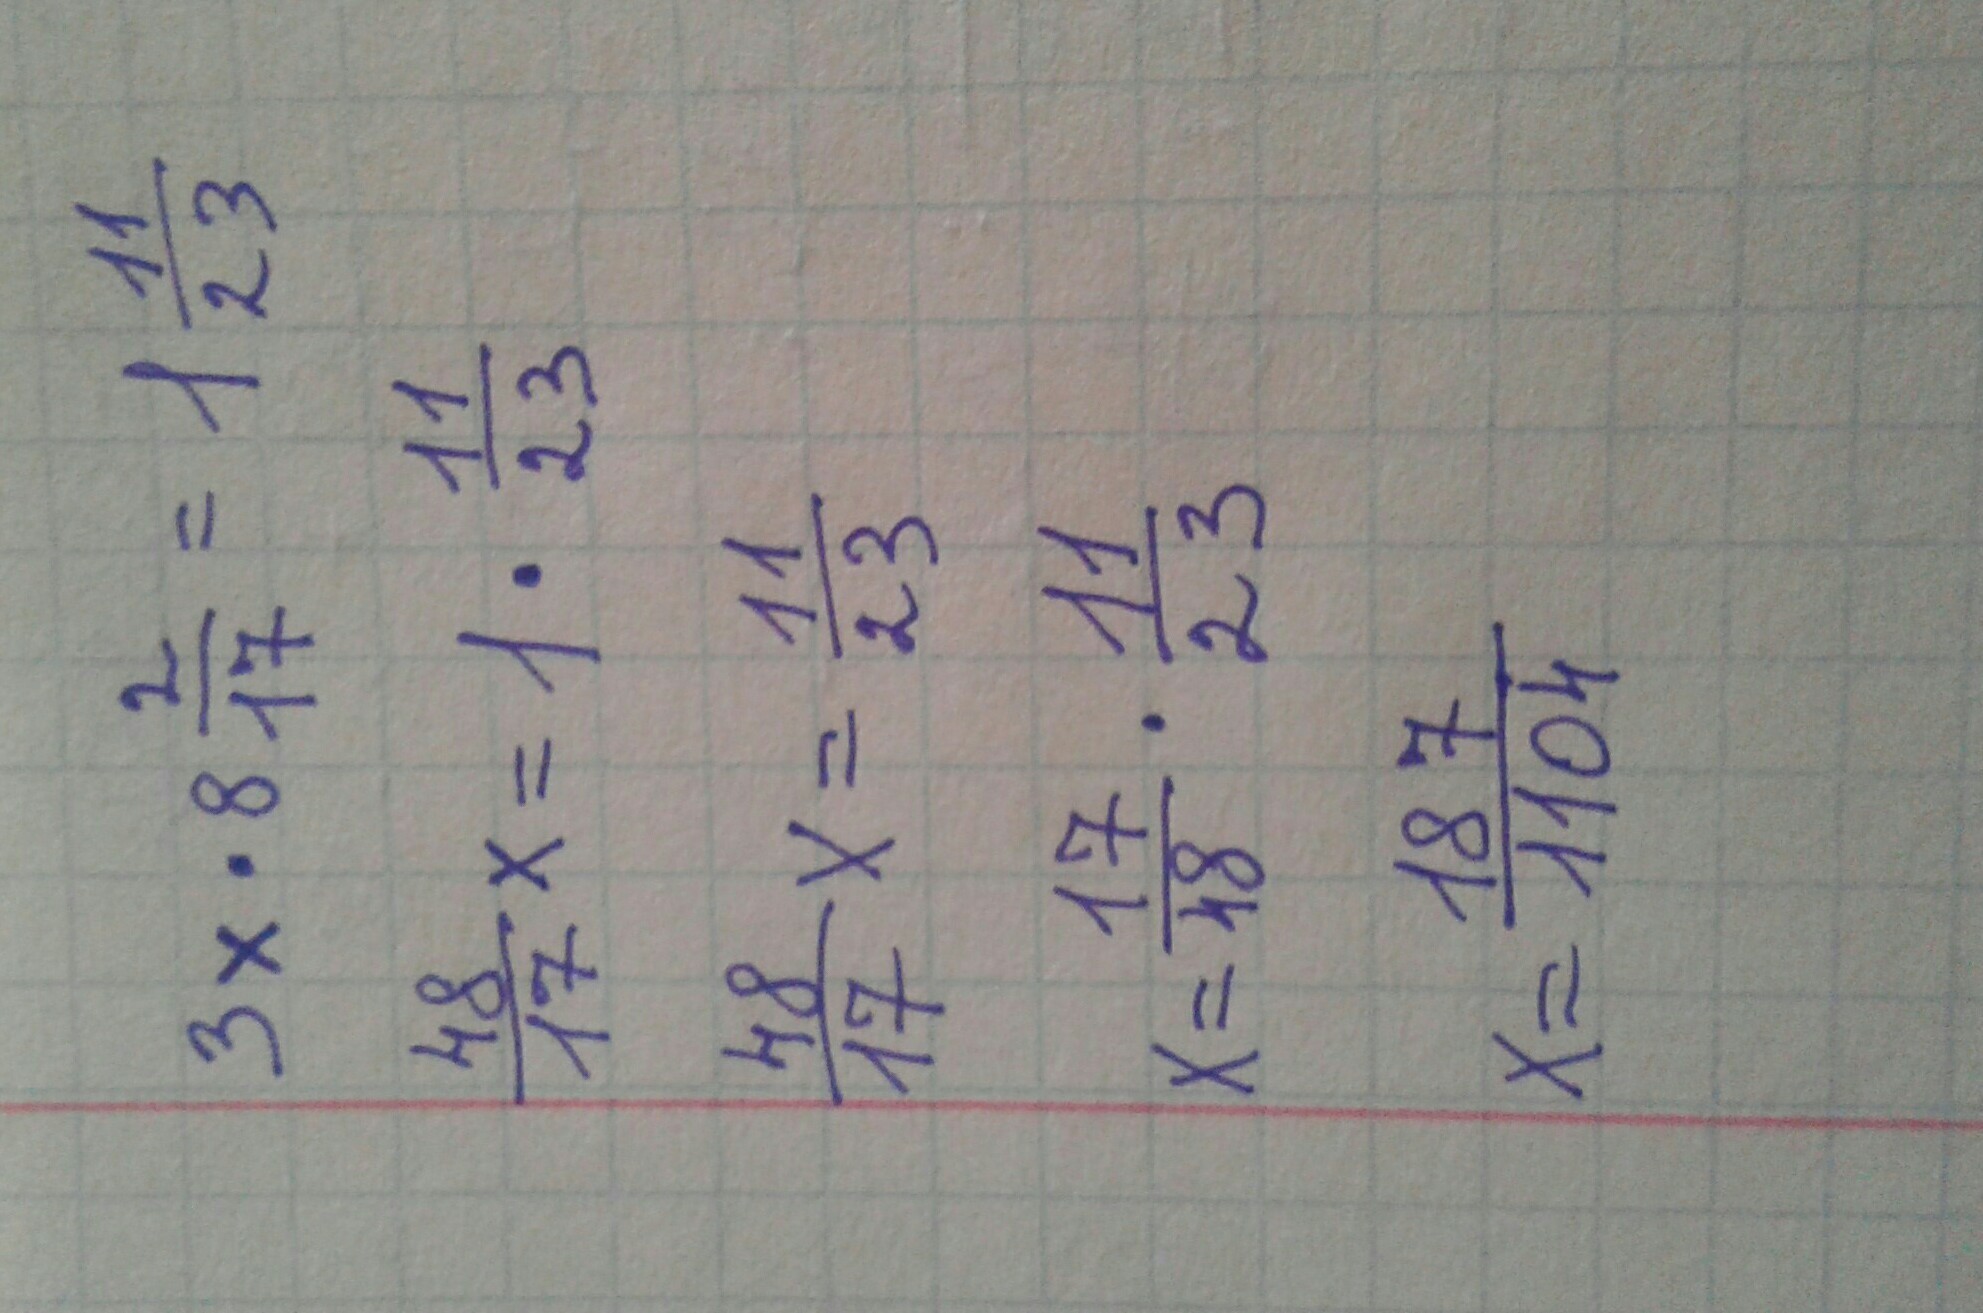 3x · 8 2/17 = 1 11/23
48/17 x = 1 · 11/23
48/17 x = 11/23
x = 17/48 · 11/23
x = 187/1104